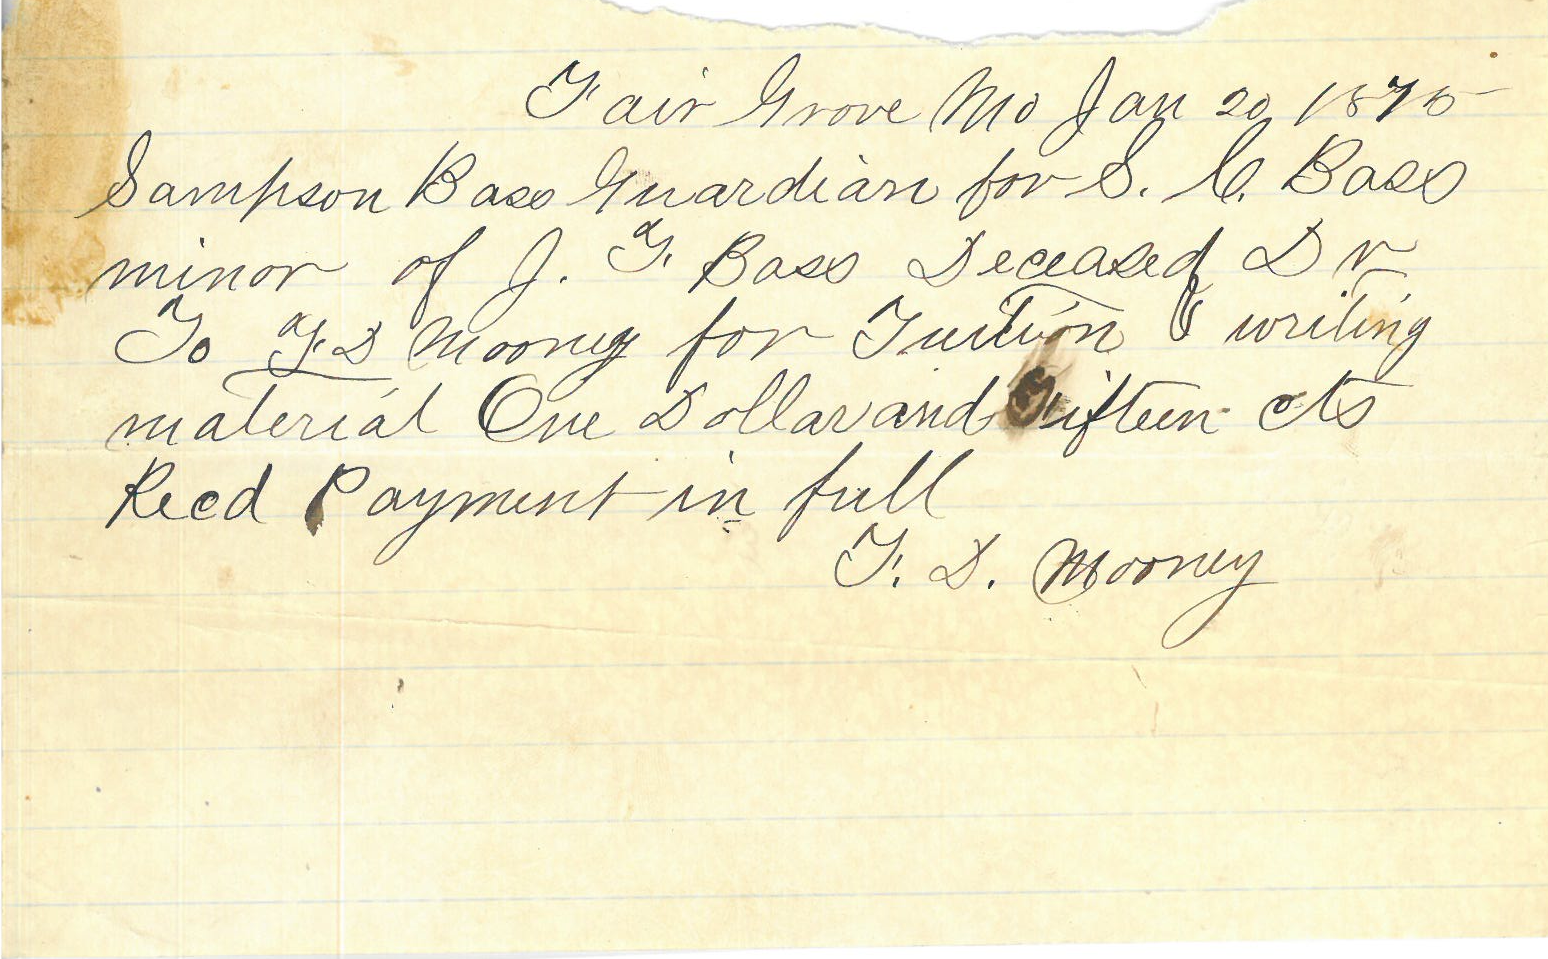 Fair Grove Mo Jan 20 1875
Sampson Bass Guardian for S. C. Bass
minor of J. G. Bass Deceased Dr
To F. D Mooney for Tuition & writing
material One Dollar and Fifteen cts
Recd Payment in full
F. D. Mooney